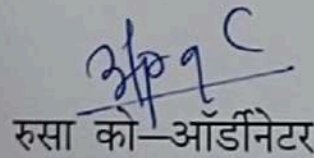 रुसा को–ऑर्डीनेटर